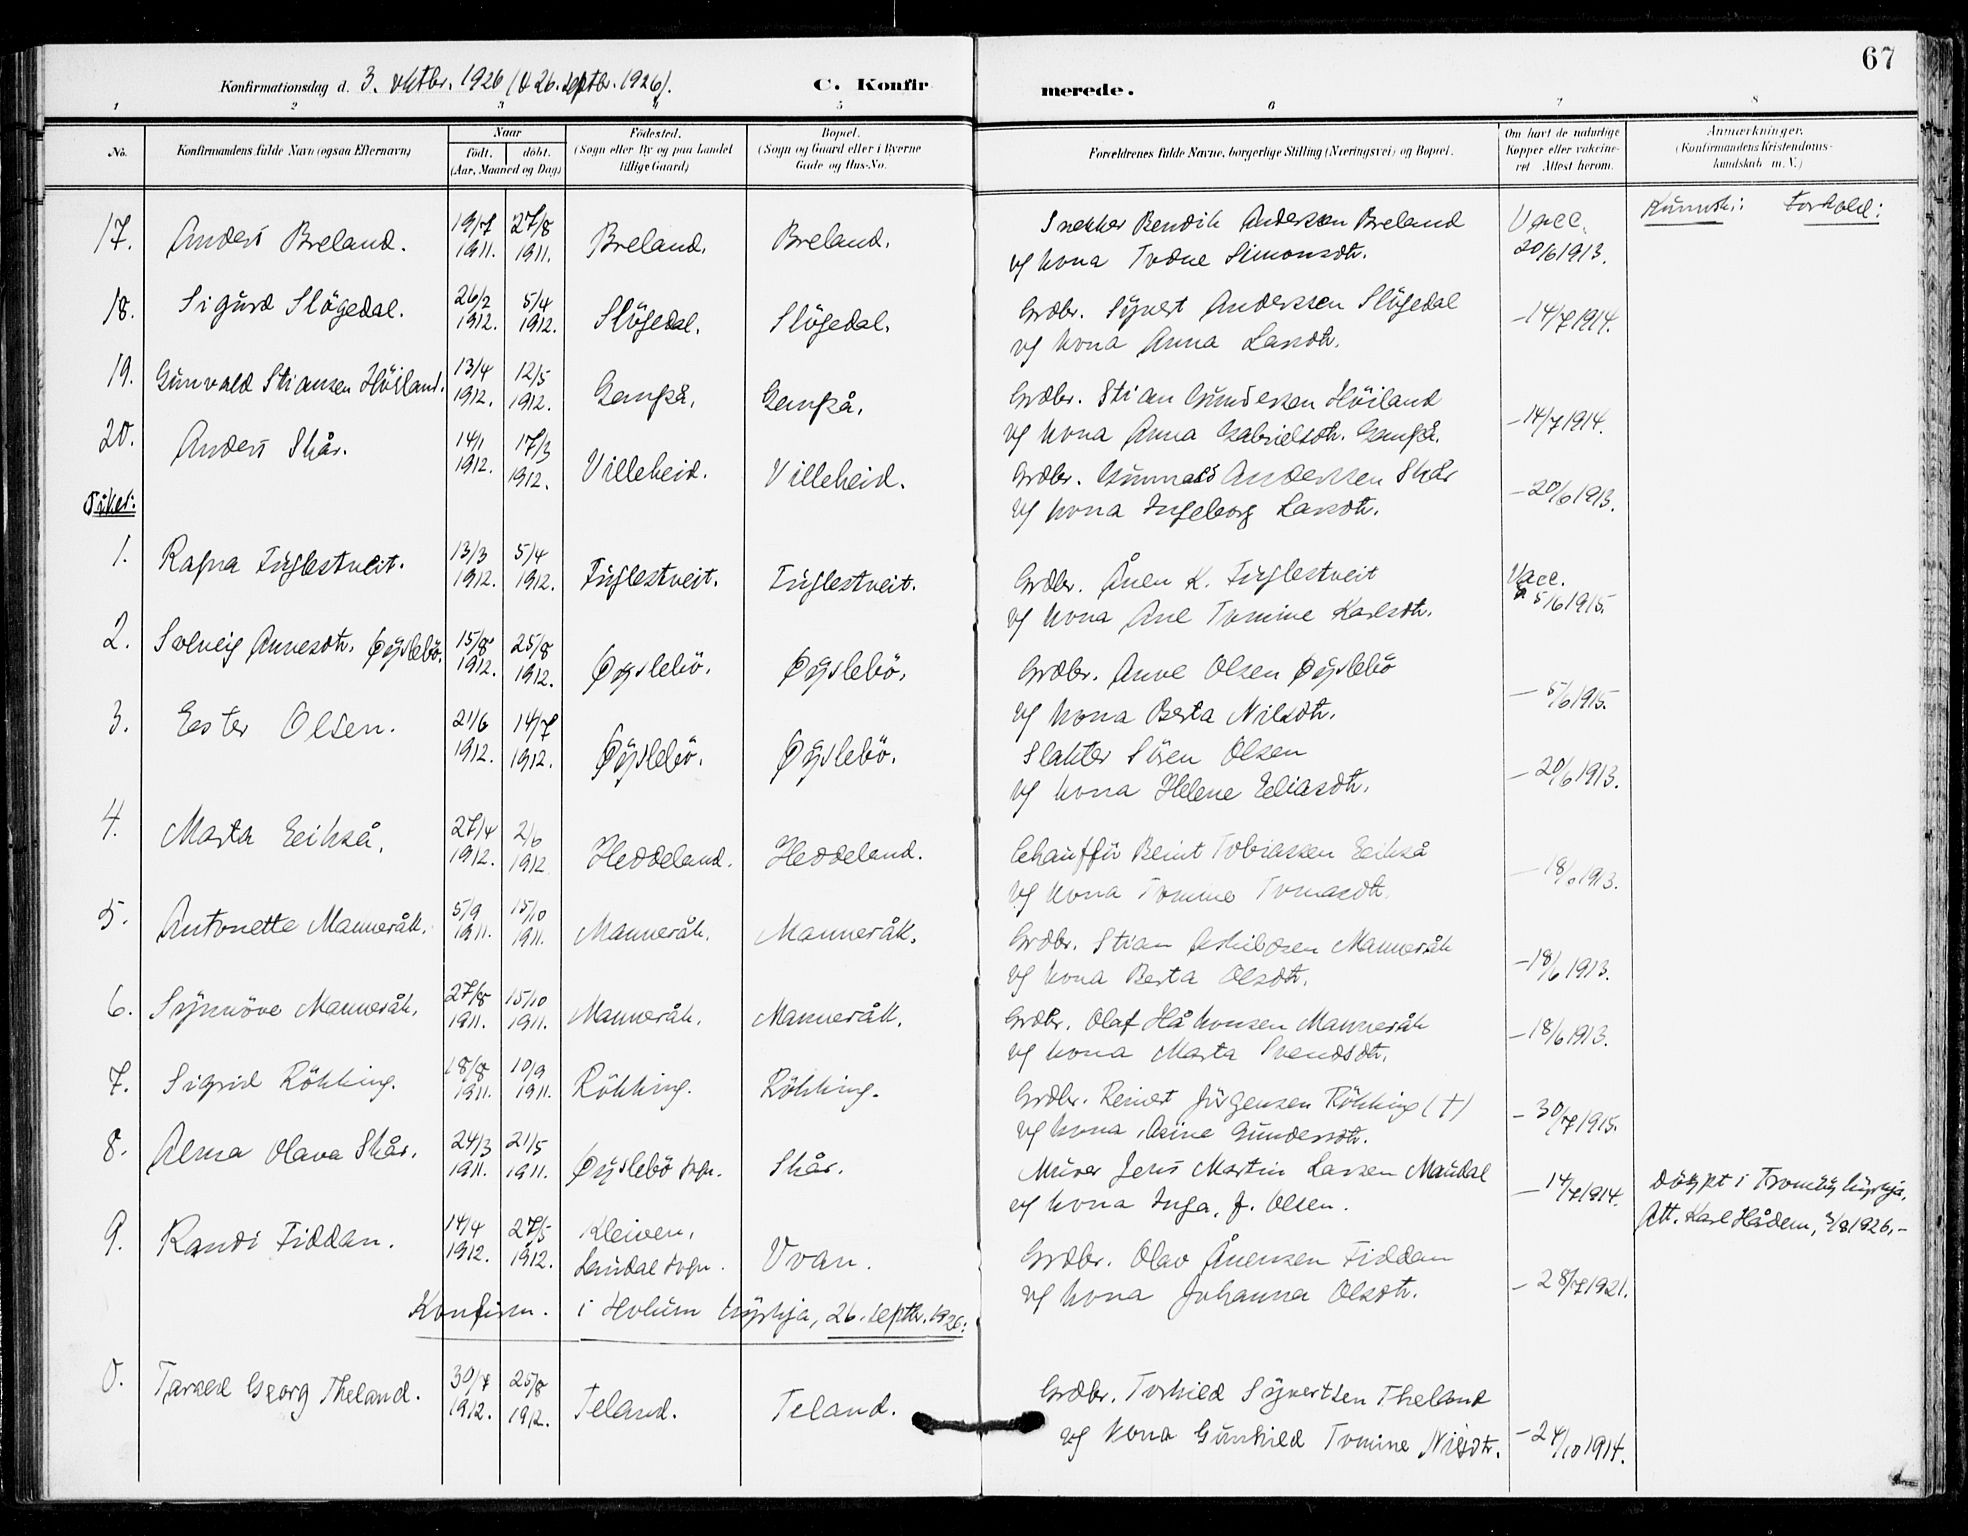 67
Konfirmationsdag d. 3. oktbr. 1926 (& 26. septbr. 1926).
C. Konfir
merede.
1 2 3 4 5 6 7 8
No.
Konfirmandens fulde Navn (ogsaa Efternavn)
Naar
født. døbt.
(Aar, Maaned og Dag)
Fødested.
(Sogn eller By og paa Landet
tillige Gaard)
Bopæl.
(Sogn og Gaard eller i Byerne
Gade og Hus-No.
Forældrenes fulde Navne, borgerlige Stilling (Næringsvei) og Bopæl.
Om havt de naturlige
Kopper eller vakcine-
ret Attest herom.
Anmærkninger.
(Konfirmandens Kristendoms-
kundskab m. V.)
Kunnsk: Forhold:
17. Anders Breland. 19/7 1911. 27/8 1911. Breland. Breland. Snekker Bendik Anderssen Breland Vacc.
og kona Todne Simonsdtr. 20/6 1913.
18. Sigurd Slögedal. 26/2 1912. 5/4 1912. Slögedal. Slögedal. Grdbr. Syvert Anderssen Slögedal
og kona Anna Larsdtr. – 14/7 1914.
19. Gunvald Stiansen Höiland. 13/4 1912. 12/5 1912. Gangså. Gangså. Grdbr. Stian Gunderssen Höiland
og kona Anna Gabrielsdtr. Gangså. – 14/7 1914.
20. Anders Skår. 14/1 1912. 17/3 1912. Villeheid. Villeheid. Grdbr. Gunnald Anderssen Skår
og kona Ingeborg Larsdtr. – 20/6 1913.
Piker:
1. Ragna Fuglestveit. 13/3 1912. 5/4 1912. Fuglestveit. Fuglestveit. Grdbr. Ånen K. Fuglestveit Vacc.
og kona Ane Tomine Karlsdtr. 5/6 1915.
2. Solveig Annesdtr. Øyslebö. 15/8 1912. 25/8 1912. Øyslebö. Øyslebö. Grdbr. Anve Olsen Øyslebö
og kona Berta Nilsdtr. – 5/6 1915.
3. Ester Olsen. 21/6 1912. 14/7 1912. Øyslebö. Øyslebö. Slakter Sören Olsen
og kona Helene Eliasdtr. – 20/6 1913.
4. Marta Eeikså. 27/4 1912. 2/6 1912 Heddeland. Heddeland. Chauffør Beint Tobiassen Eeikså
og kona Tomine Tomasdtr. – 18/6 1913.
5. Antonette Manneråk. 5/9 1911. 15/10 1911. Manneråk. Manneråk. Grdbr. Stian Askildsen Manneråk
og kona Berta Olsdtr. – 18/6 1913.
6. Synnöve Manneråk. 27/8 1911. 15/10 1911. Manneråk. Manneråk. Grdbr. Olaf Håkonsen Manneråk
og kona Marta Svendsdtr. – 18/6 1913.
7. Sigrid Rökking. 18/8 1911. 10/9 1911. Rökking. Rökking. Grdbr. Reinert Jörgensen Rökking (†)
og kona Asine Gundersdtr. – 30/7 1915.
8. Alma Olava Skår. 24/3 1911. 21/5 1911. Øyslebö sogn. Skår. Murer Jens Martin Larsen Mandal
og kona Inga, f. Olsen. – 14/7 1914. Döypt i Tromöy kyrkja.
Att. Karl Hådem, 3/8 1926. –
9. Randi Fiddan. 14/4 1912. 27/5 1912. Kleiven, Laudal sogn. Uvan. Grdbr. Olav Ånensen Fiddan
og kona Johanna Olsdtr. – 28/7 1921.
Konfirm. i Holum kyrkja, 26. septbr. 1926:
0. Tarald Georg Theland. 30/7 1912. 25/8 1912. Teland. Teland. Grdbr. Torkild Syvertsen Theland
og kona Gunhild Tomine Nilsdtr. – 24/10 1914.